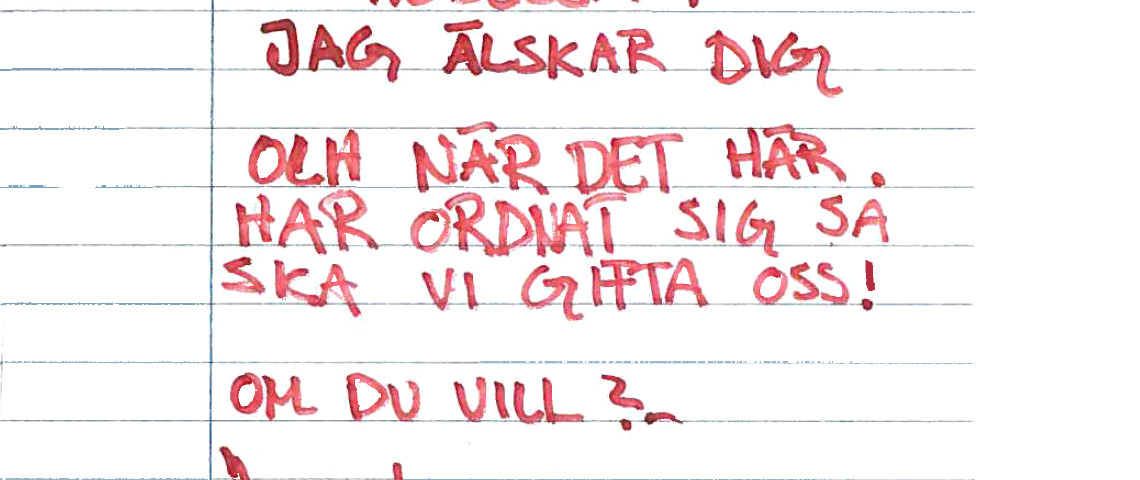 JAG ÄLSKAR DIG
OCH NÄR DET HÄR.
HAR ORDNAT SIG SA
SKA VI GIFTA OSS!
OM DU VILL?